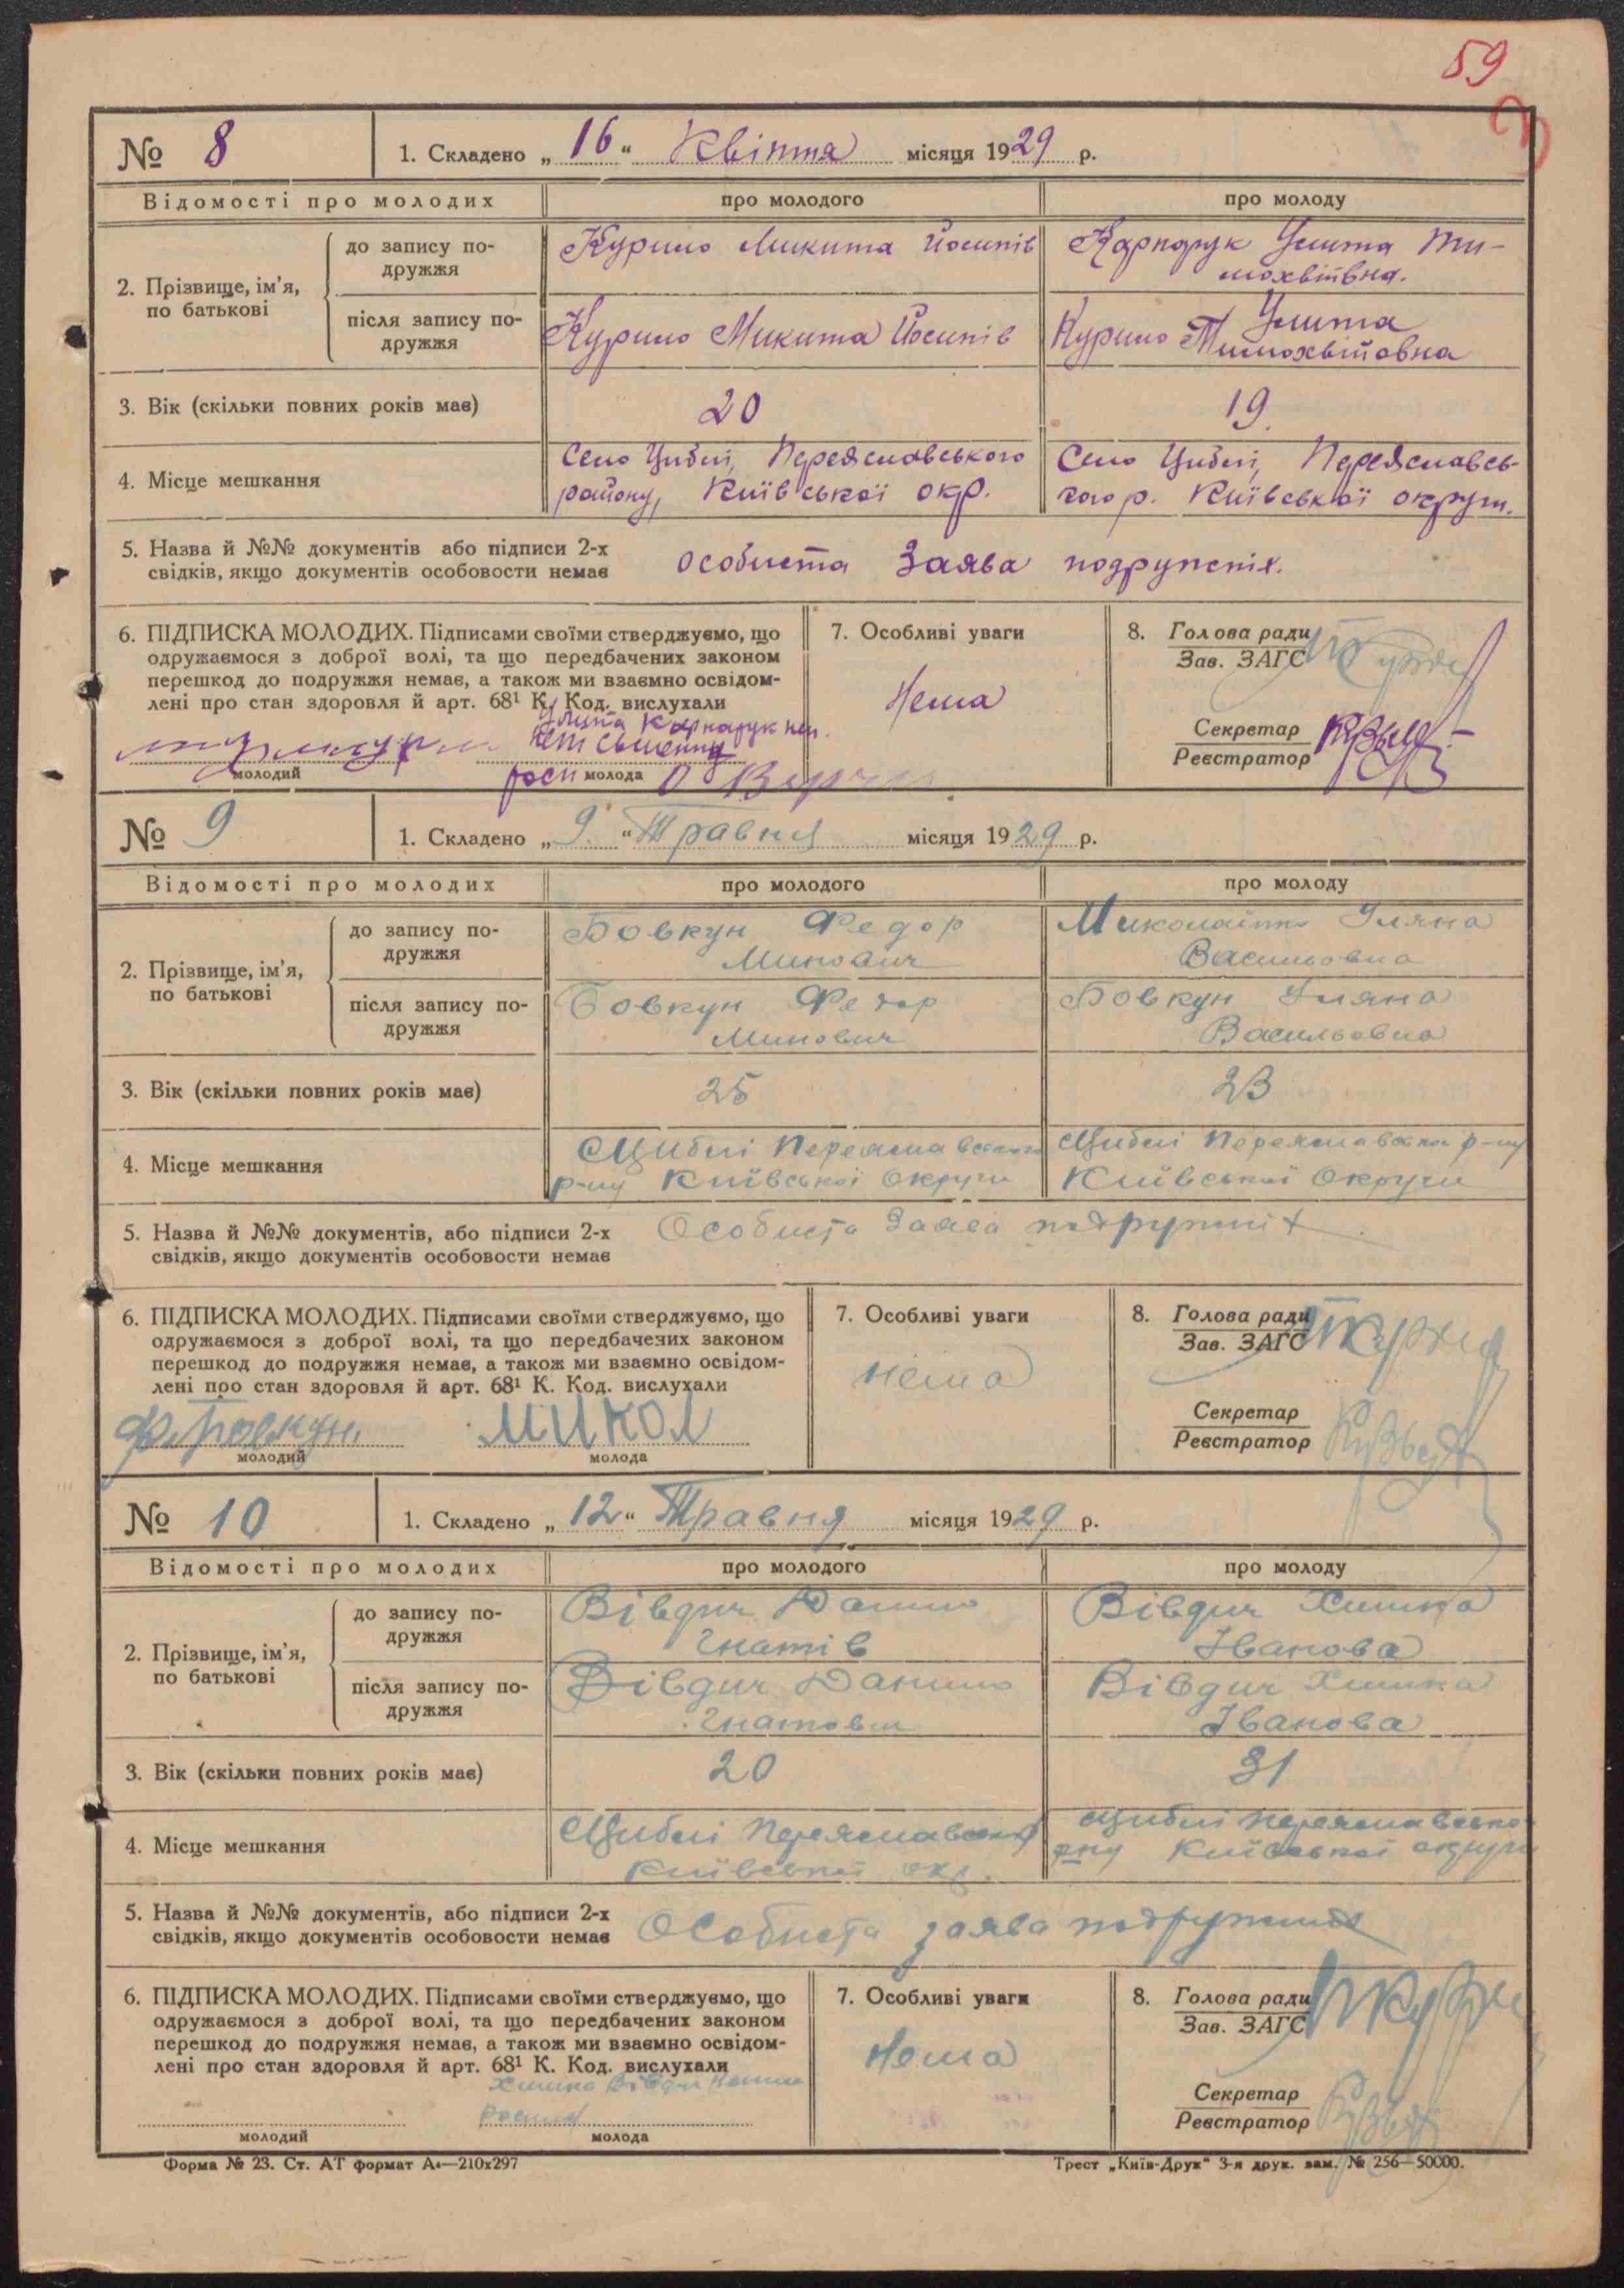 59
№ 8 1. Складено „16“ Квітня місяця 1929 р.
Відомості про молодих про молодого про молоду
2. Прізвище, ім’я, по батькові
до запису по-
дружжя
Курило Микита Йосипів
Карпарук Улита Ти-
мохвіївна.
після запису по-
дружжя
Курило Микита Йосипів
Курило Улита
Тимохвійовна
3. Вік (скільки повних років має) 20 19.
4. Місце мешкання
Село Циблі, Переяславського
району, Київської окр.
Село Циблі, Переяславсь-
кого р. Київської округи.
5. Назва й №№ документів або підписи 2-х
свідків, якщо документів особовости немає
особиста Заява подружніх.
6. ПІДПИСКА МОЛОДИХ. Підписами своїми стверджуємо, що
одружаємося з доброї волі, та що передбачених законом
перешкод до подружжя немає, а також ми взаємно освідом-
лені про стан здоровля й арт. 68¹ К. Код. вислухали
Улита Карпарук
молодий
молода
7. Особливі уваги
Нема
8. Голова ради
Зав. ЗАГС
Секретар
Реєстратор
№ 9 1. Складено „9“ Травня місяця 1929 р.
Відомості про молодих про молодого про молоду
2. Прізвище, ім’я,
по батькові
до запису по-
дружжя
Бовкун Федор
Минович
Миколаїнко Уляна
Васильовна
після запису по-
дружжя
Бовкун Федор
Минович
Бовкун Уляна
Васильовна
3. Вік (скільки повних років має) 25 23
4. Місце мешкання
Циблі Переяславського
р-ну Київської Округи
Циблі Переяславськ р-ну
Київської Округи
5. Назва й №№ документів, або підписи 2-х
свідків, якщо документів особовости немає
Особиста Заява подружніх
6. ПІДПИСКА МОЛОДИХ. Підписами своїми стверджуємо, що
одружаємося з доброї волі, та що передбачених законом
перешкод до подружжя немає, а також ми взаємно освідом-
лені про стан здоровля й арт. 68¹ К. Код. вислухали
Ф. Бовкун
молодий
МИКОЛ
молода
7. Особливі уваги
Нема
8. Голова ради
Зав. ЗАГС
Секретар
Реєстратор
№ 10 1. Складено „12“ Травня місяця 1929 р.
Відомості про молодих про молодого про молоду
2. Прізвище, ім’я,
по батькові
до запису по-
дружжя
Вівдич Данило
Гнатів
Вівдич Химка
Іванова
після запису по-
дружжя
Вівдич Данило
Гнатович
Вівдич Химка
Іванова
3. Вік (скільки повних років має) 20 31
4. Місце мешкання
Циблі Переяславськ
Київської окр.
Циблі Переяславсько
р-ну Київської округи
5. Назва й №№ документів, або підписи 2-х
свідків, якщо документів особовости немає
Особиста заява подружніх
6. ПІДПИСКА МОЛОДИХ. Підписами своїми стверджуємо, що
одружаємося з доброї волі, та що передбачених законом
перешкод до подружжя немає, а також ми взаємно освідом-
лені про стан здоровля й арт. 68¹ К. Код. вислухали
Химка Вівдич
молодий
молода
7. Особливі уваги
Нема
8. Голова ради
Зав. ЗАГС
Секретар
Реєстратор
Форма № 23. Ст. АТ формат А₄—210х297
Трест „Київ-Друк“ 3-я друк. зам. № 256—50000.